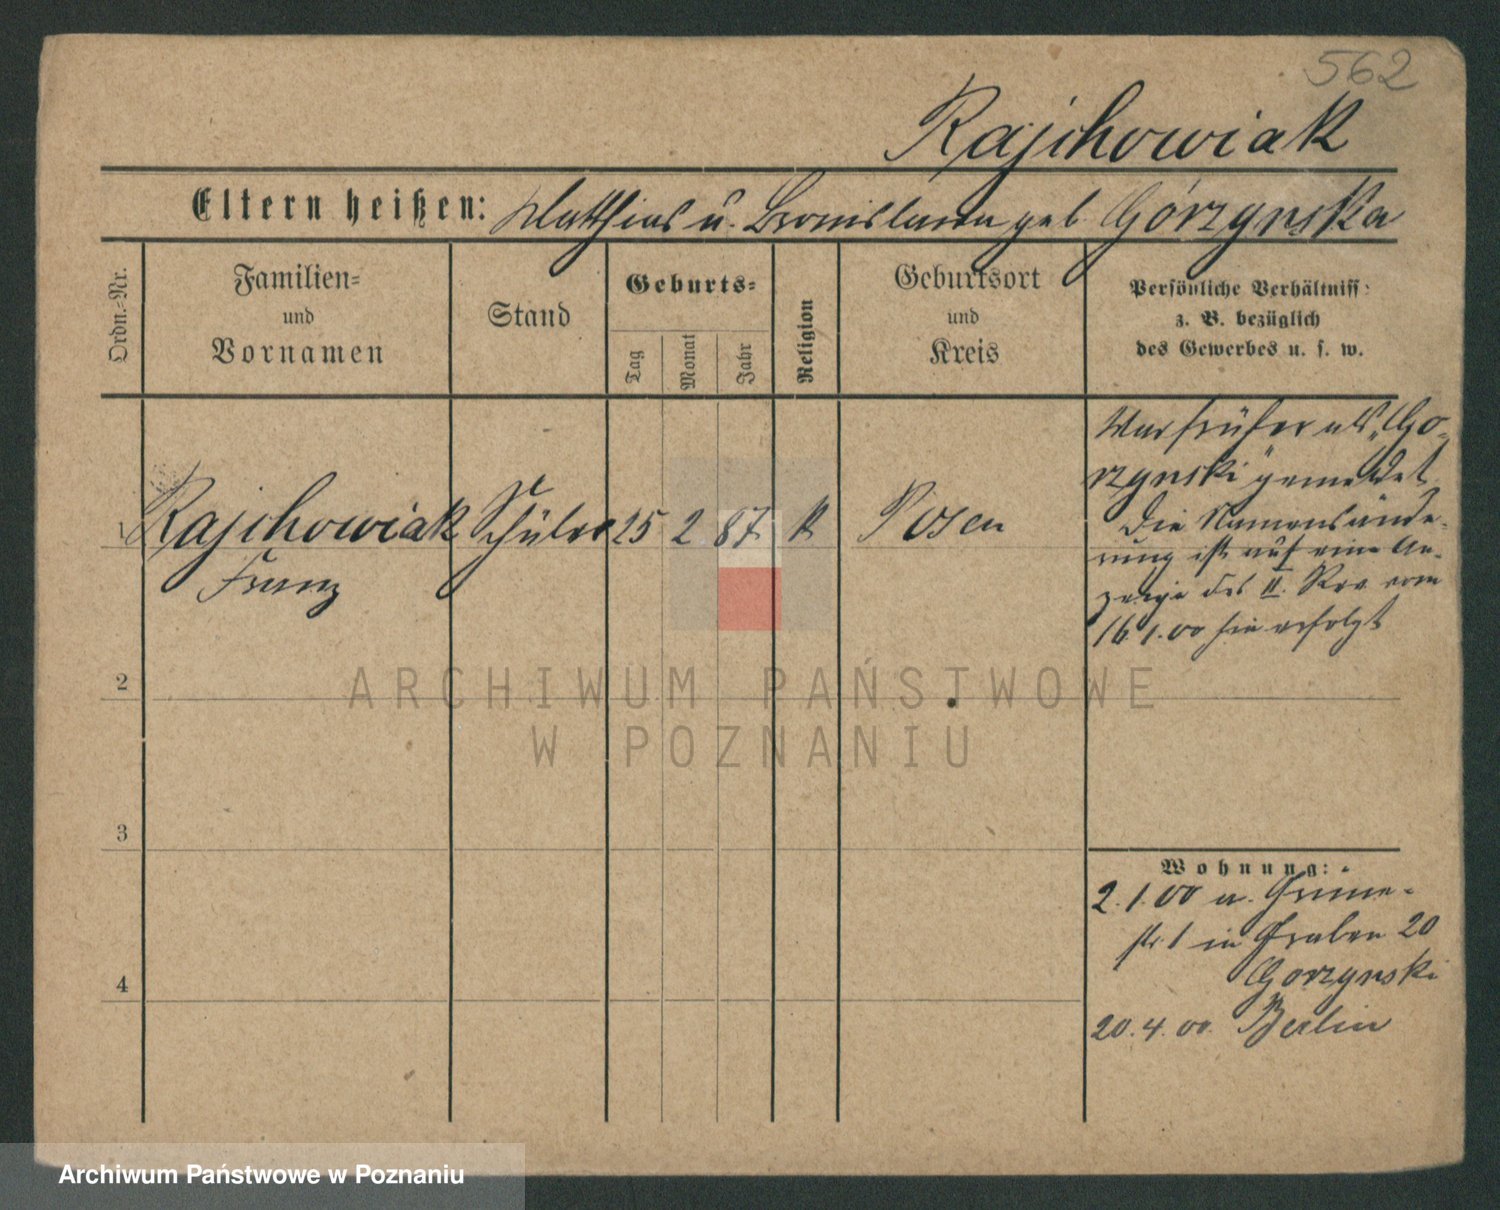 562
Rajchowiak
Eltern heißen: Matthias u. Bronislawa geb. Górzynska
Ordn.-Nr.
Familien-
und
Vornamen
Stand
Geburts-
Tag
Monat
Jahr
Religion
Geburtsort
und
Kreis
Persönliche Verhältniss:
z. B. bezüglich
des Gewerbes u. s. w.
1 Rajchowiak Schüler 25 2 87 k Posen
Franz
War früher als „Go-
rzynski" gemeldet
Die Namensände-
rung ist auf eine An-
zeige des II. Rev vom
16.1.00 hin erfolgt
2
3
4
Wohnung:
2.1.00 u. Grüne-
str. 1 in Graben 20
Gorzynski
20.4.00. Berlin
ARCHIWUM PAŃSTWOWE
W POZNANIU
Archiwum Państwowe w Poznaniu